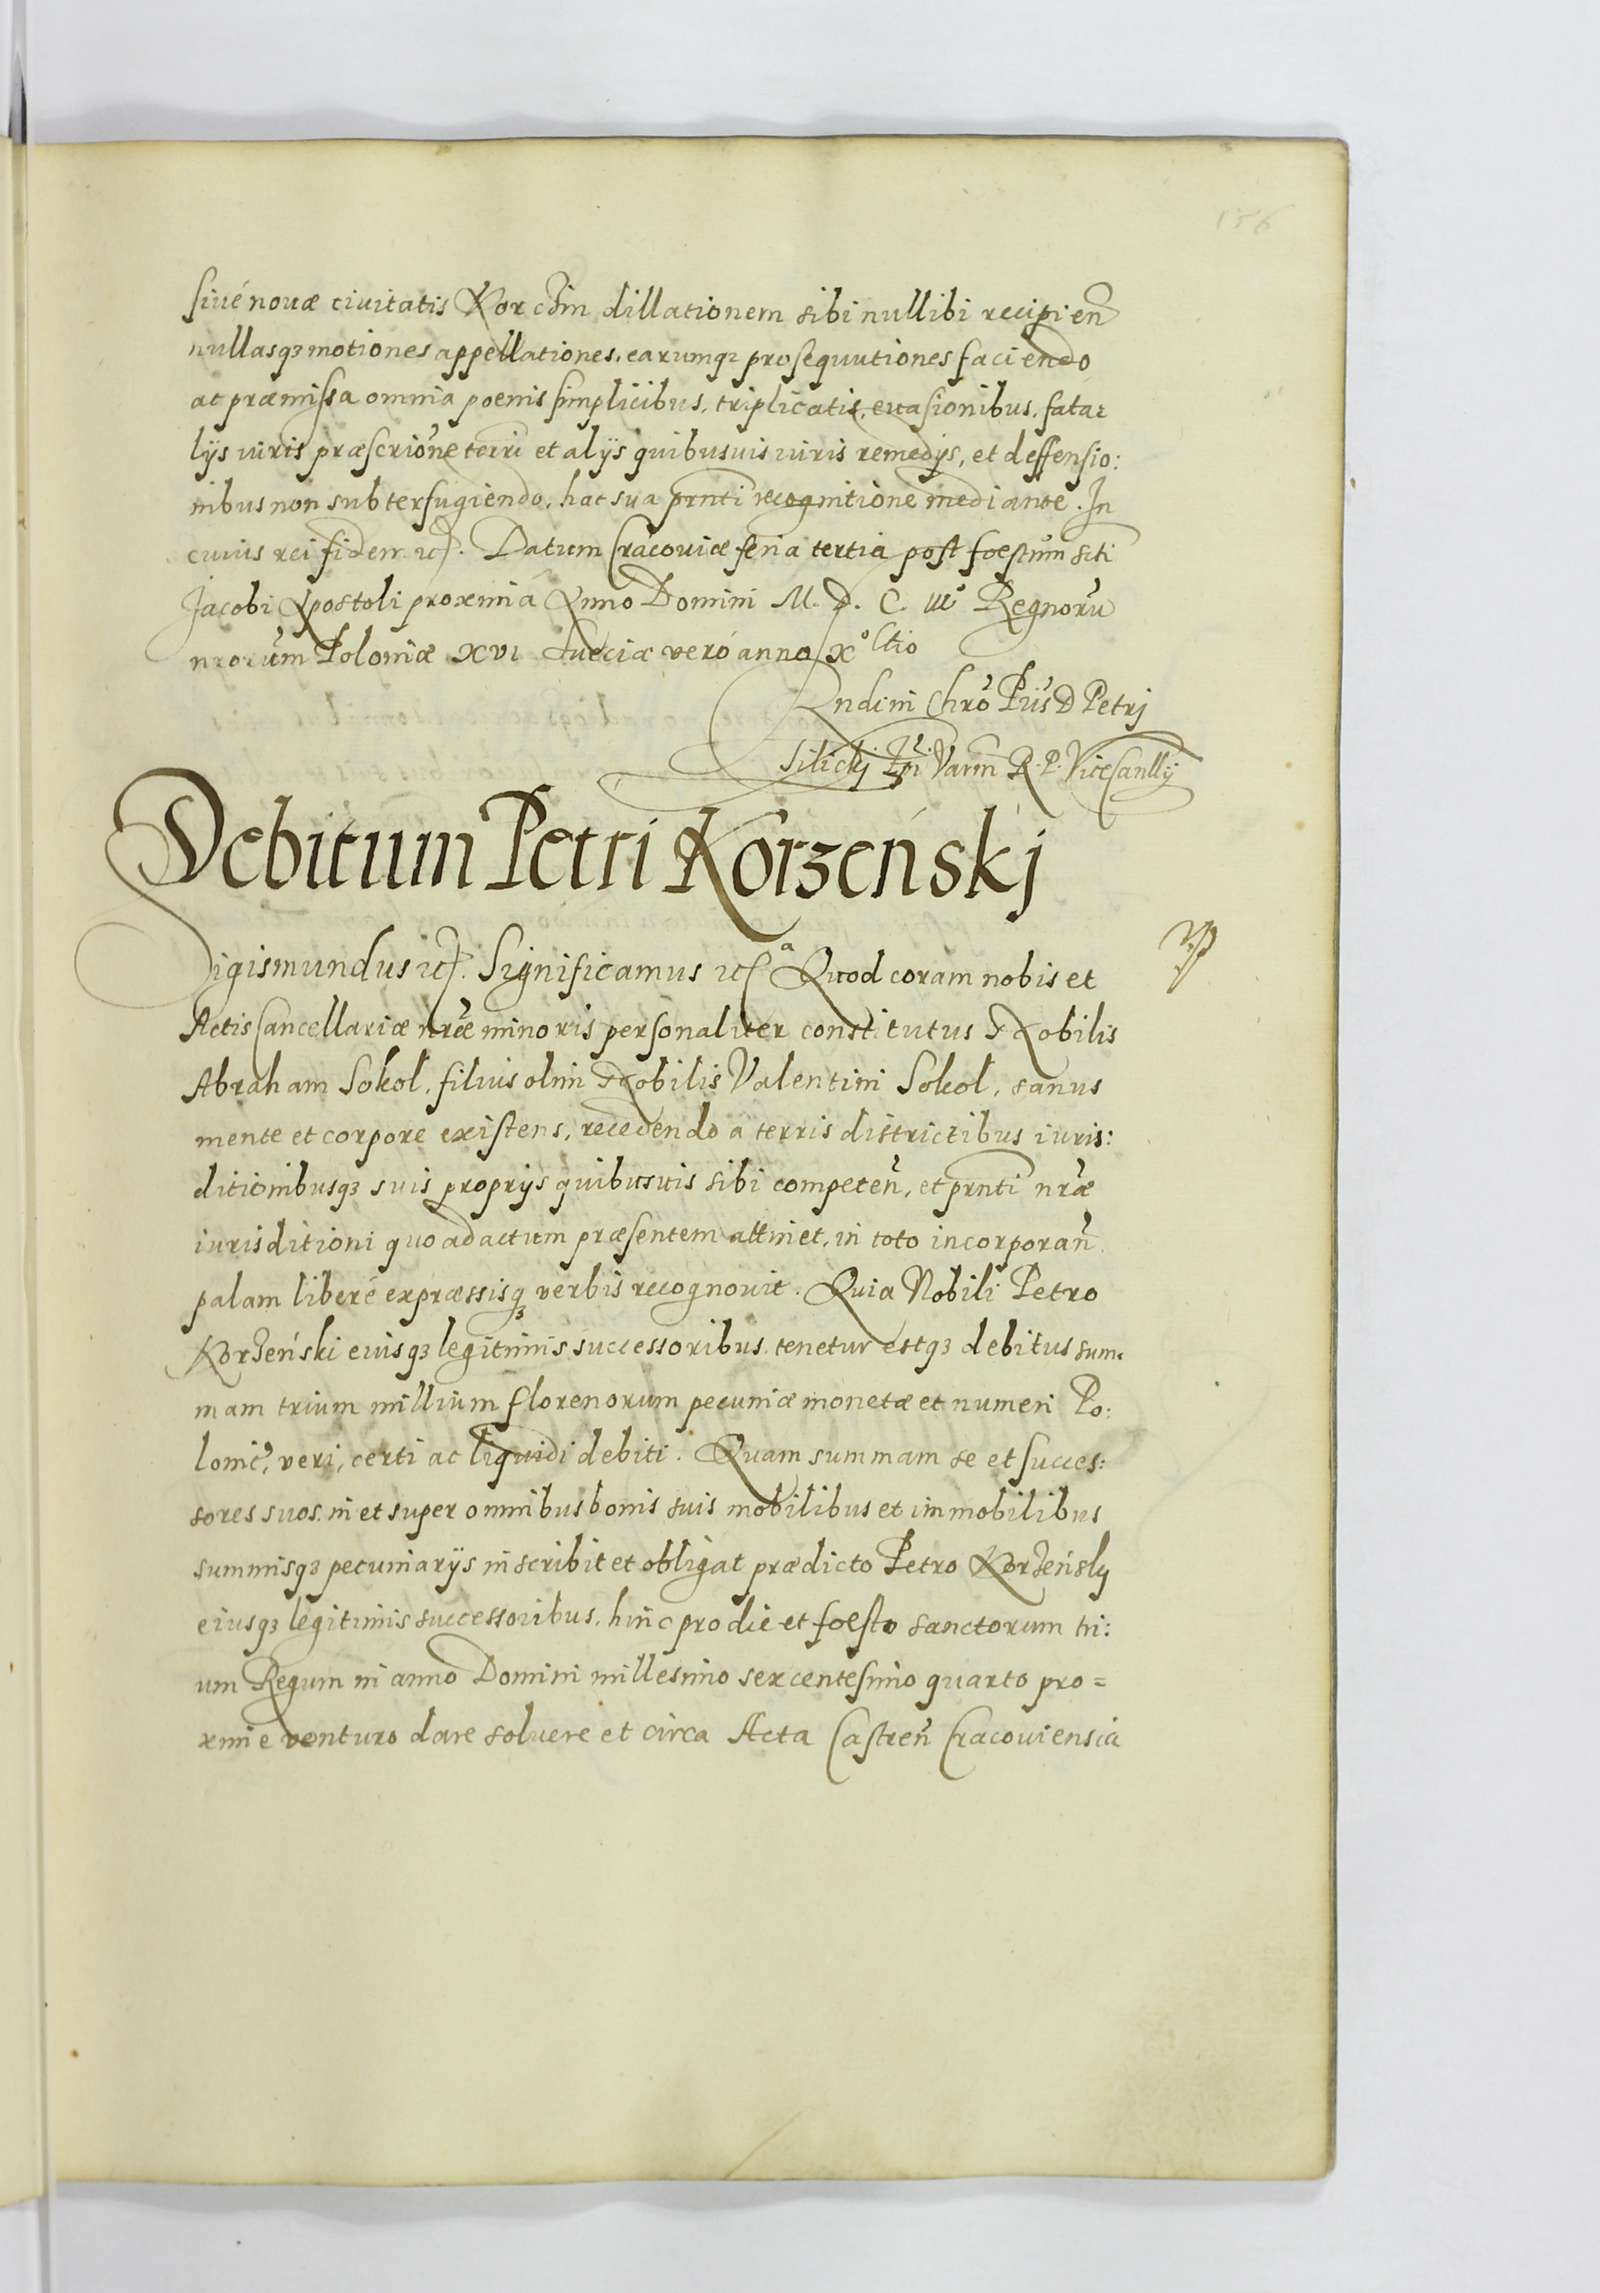 156
siué nouæ ciuitatis Korczin dillationem sibi nullibi recipień
nullasqз motiones appellationes, earumqз prosequutiones faciendo
ac præmissa omnia poenis simplicibus, triplicatis, euasionibus, fata=
lÿs iuris præscrione terri et alÿs quibusuis iuris remedÿs, et deffensio:
nibus non subterfugiendo, hac sua prnti recognitione mediante. In
cuius rei fidem etc. Datum Cracouiæ feria tertia post foestum scti
Jacobi Apostoli proximá Anno Domini M. D. C. III° Regnorū
nrorum Poloniæ XVI Sueciæ veró anno X°
Rndim Chro Pris D Petri
Tilicki Epi Varm R. P. ViceCanllÿ
Debitum Petri Korzeński
Sigismundus etc. Significamus etc.ª Quod coram nobis et
Actis Cancellariæ nræ minoris personaliter constitutus Nobilis
Abraham Sokol, filius olim Nobilis Valentini Sokol, sanus
mente et corpore existens, recedendo á terris districtibus iuris:
ditionibusqз suis proprÿs quibusuis sibi competeñ, et prnti nræ
iurisditioni quo ad actum præsentem attinet, in toto incorporañ
palam liberé expræssisqз verbis recognouit. Quia Nobili Petro
Korzeński eiusqз legitimis successoribus tenetur estqз debitus sum:
mam trium millium florenorum pecuniæ monetæ et numeri Po:
lonic, veri, certi ac liquidi debiti. Quam summam se et succes:
sores suos, in et super omnibus bonis suis mobilibus et immobilibus
summisqз pecuniarÿs inscribit et obligat prædicto Petro Korzeńsky
eiusqз legitimis successoribus, hinc pro die et foesto sanctorum tri:
um Regum in anno Domini millesimo sexcentesimo quarto pro=
xime venturo dare soluere et circa Acta Castreñ Cracouiensia